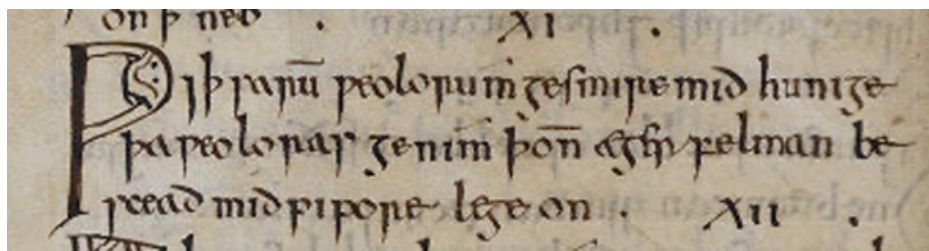 on þ neb . XI .
Ƿiþ sarū ƿeolorum gesmire mid hunige
þa ƿeoloras genim þoñ ægerfelman be
scead mid pipore lege on . XII .